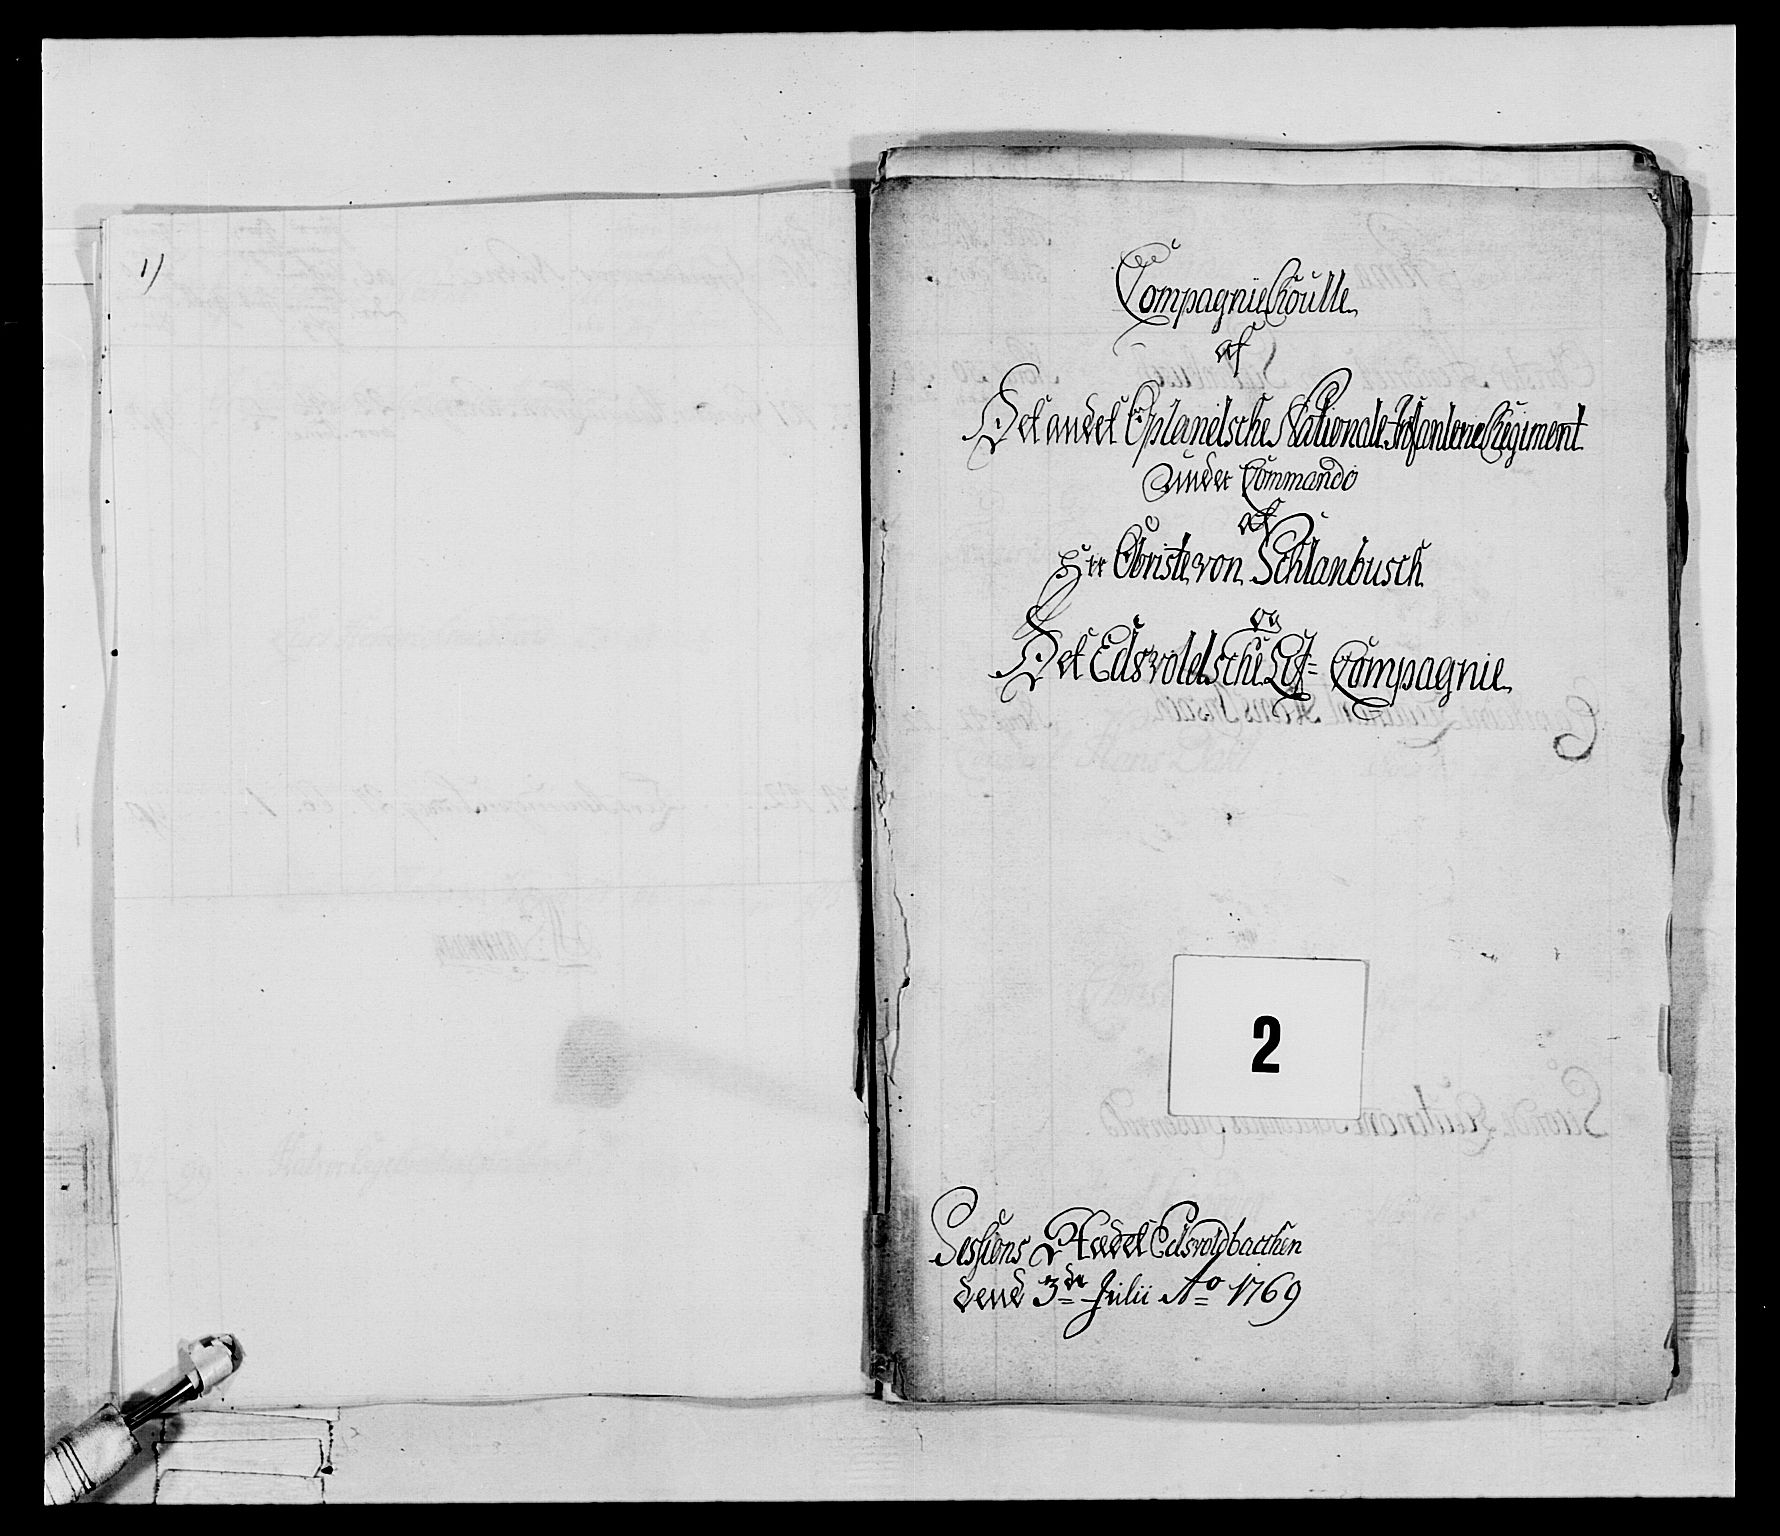 1)
Compagnie Roulle
af
Det andet Oplandsche Nationale Infanterie Regiment
under Commando
af
Hrr Obriste von Schlanbusch
og
Det Edsvoldsche Lif= Compagnie
2
Sessions Stædet Edsvoldbacken
dend 3de Julii Ao 1769